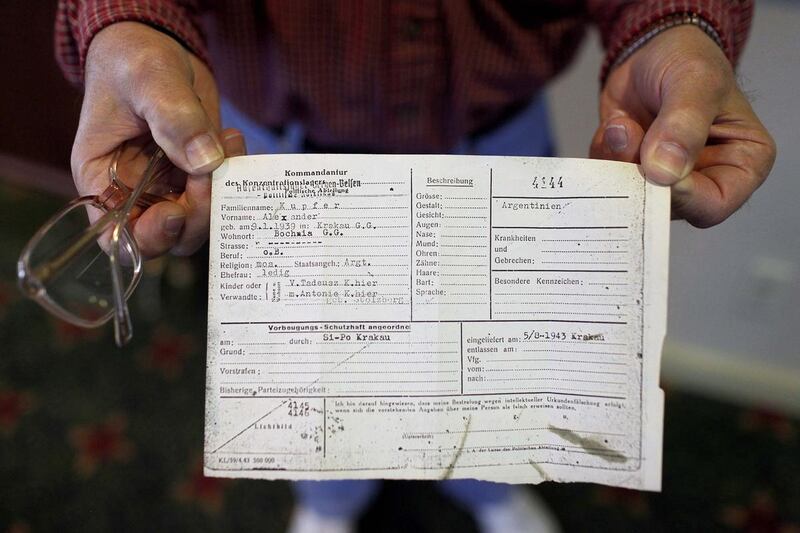 Kommandantur
des Konzentrationslagers Bergen-Belsen
Politische Abteilung
Familienname: Kupfer
Vorname: Alexander
geb. am 9.1.1939 in: Krakau G.G.
Wohnort: Bochnia G.G.
Strasse:
Beruf: o.B.
Religion: mos. Staatsangeh.: Argt.
Ehefrau: ledig
Kinder oder V.Tadeusz K.hier
Verwandte: m.Antonie K.hier
geb. Stolzberg
Beschreibung
Grösse:
Gestalt:
Gesicht:
Augen:
Nase:
Mund:
Ohren:
Zähne:
Haare:
Bart:
Sprache:
4144
Argentinien
Krankheiten
und
Gebrechen:
Besondere Kennzeichen:
Vorbeugungs-Schutzhaft angeordnet
am: durch: Si-Po Krakau
Grund:
Vorstrafen:
Bisherige Parteizugehörigkeit:
eingeliefert am: 5/8-1943 Krakau
entlassen am:
Vfg.
vom:
nach:
4145
4146
Lichtbild
KL/39/4.43 500 000
Ich bin darauf hingewiesen, dass meine Bestrafung wegen intellektueller Urkundenfälschung erfolgt,
wenn sich die vorstehenden Angaben über meine Person als falsch erweisen sollten.
g. u.
(Unterschrift)